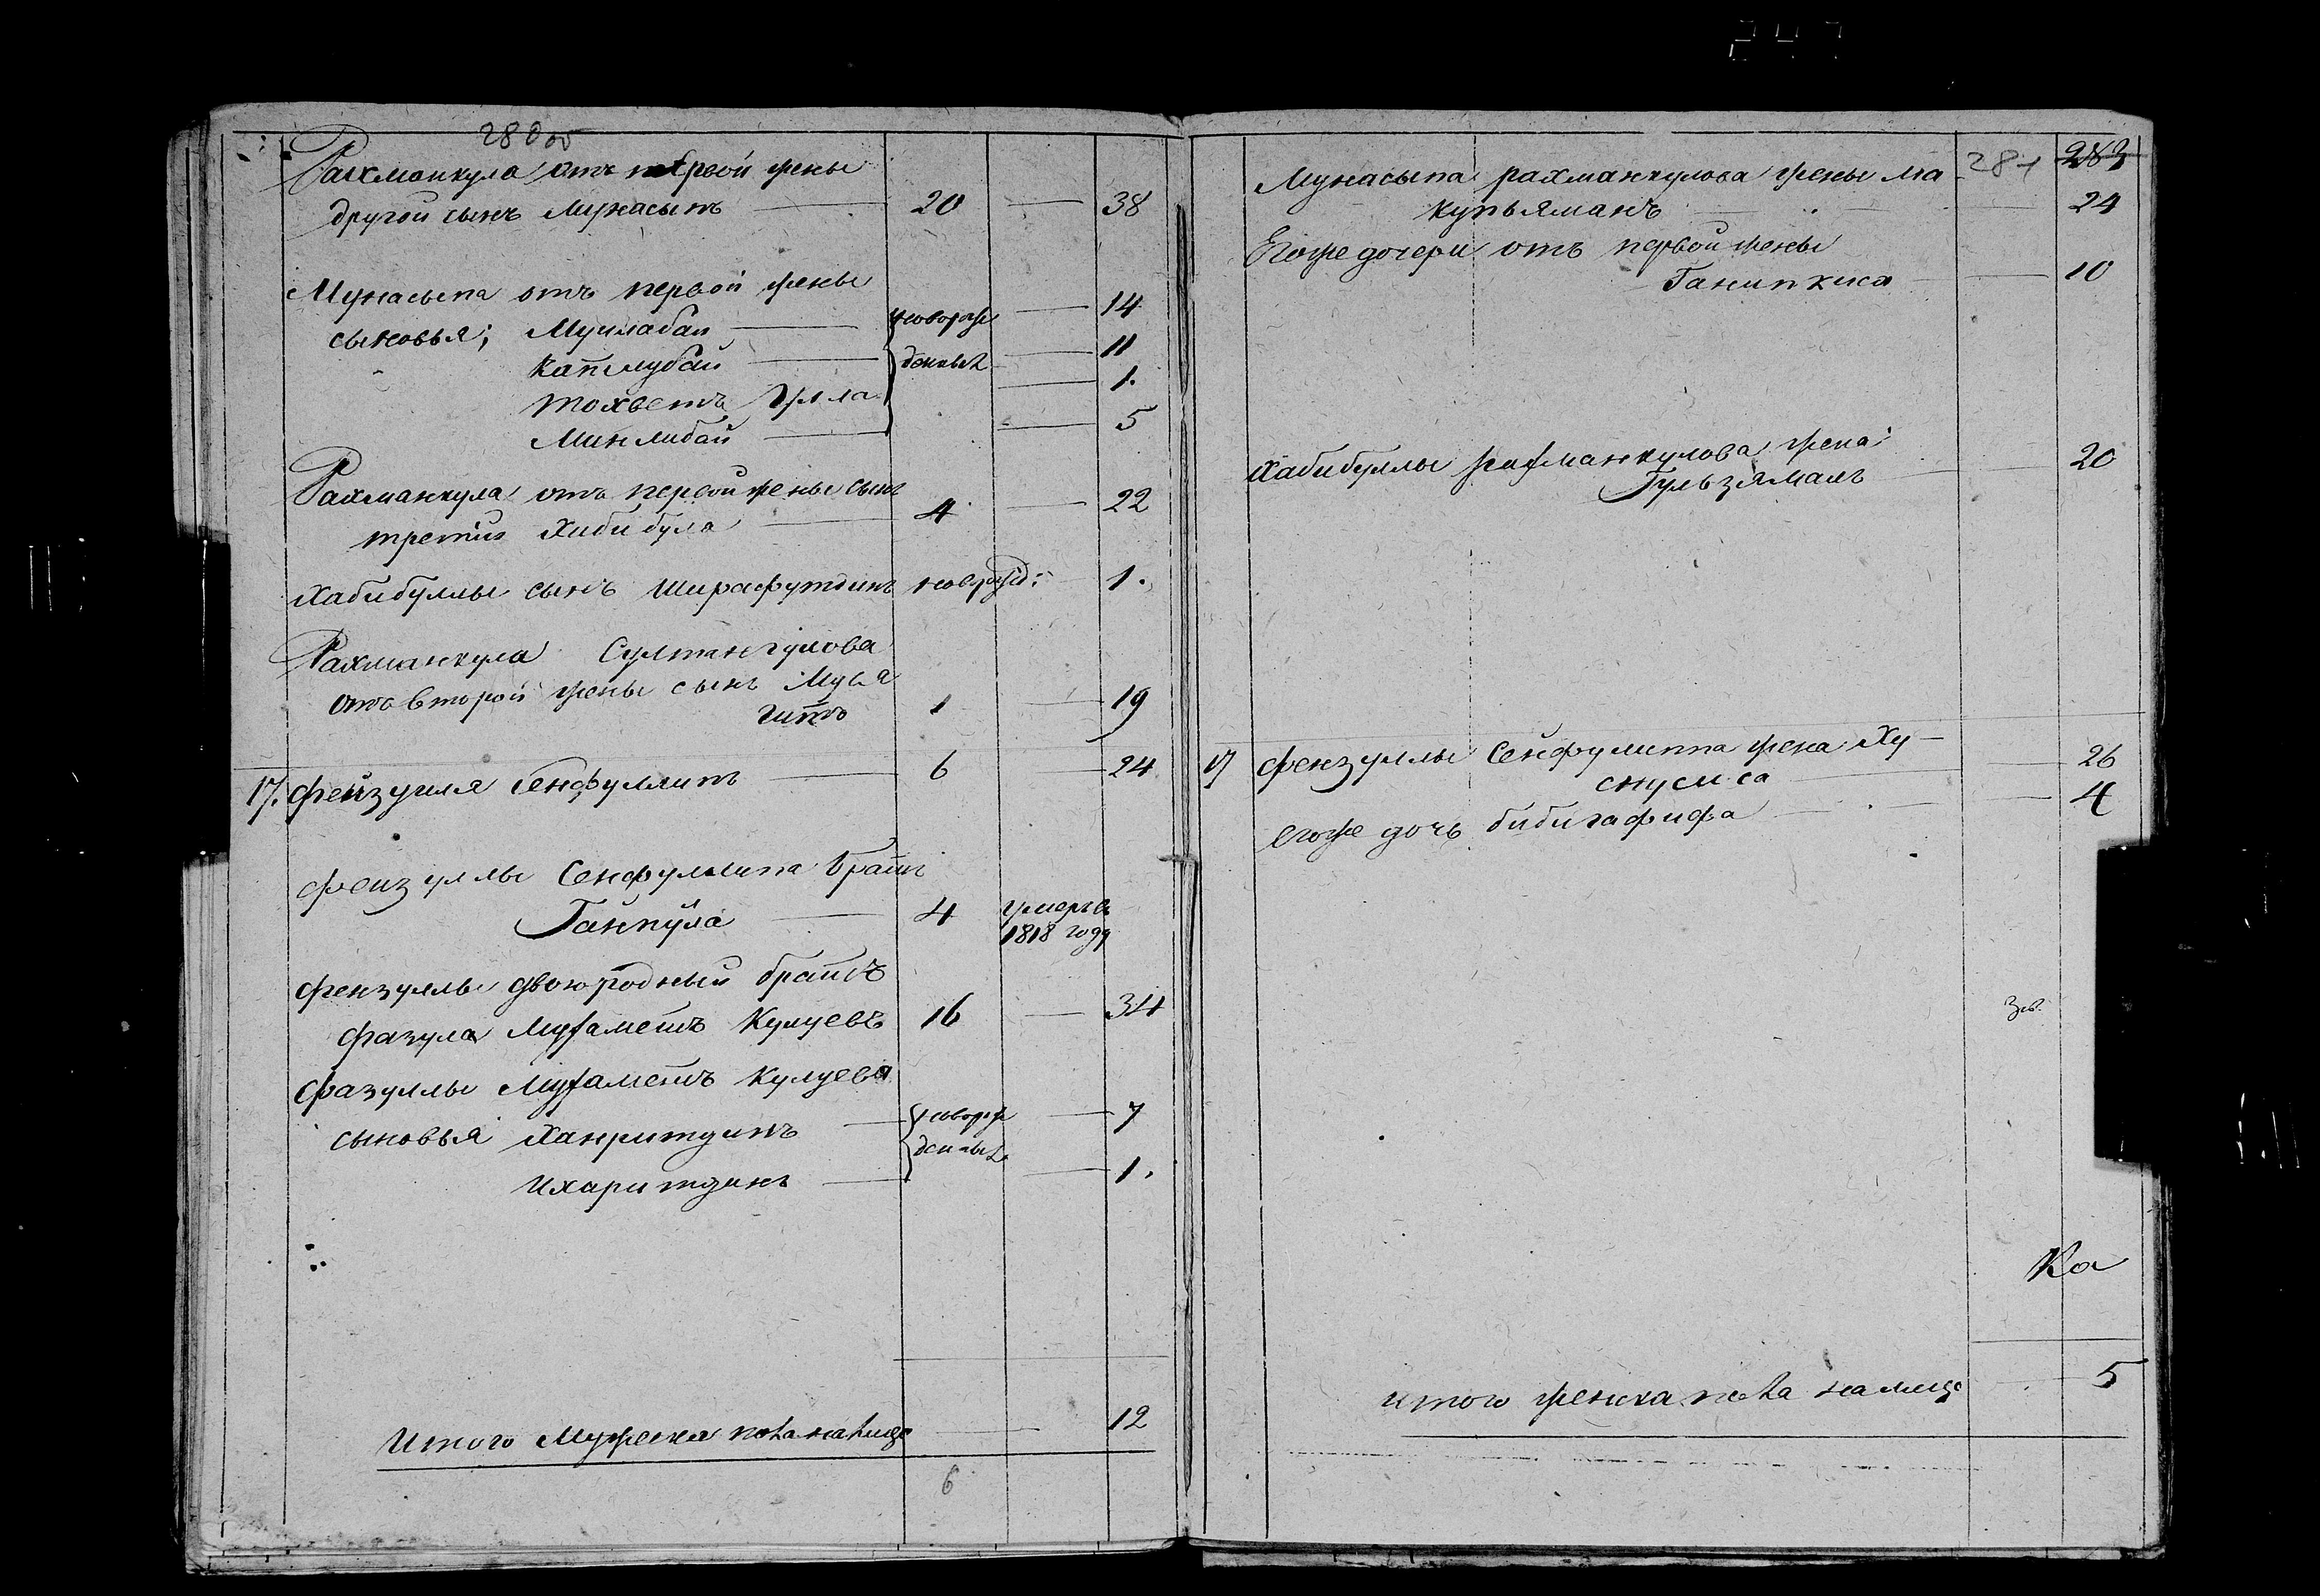 280 об
Рахманкула отъ первой жены
другой сынъ Мунасыпъ 20 — 38
Мунасыпа отъ первой жены
сыновья; Муллабай новорож 14
Катлубай денныхъ 11
Мохаметъ Улла 1.
Минлибай 5
Рахманкула отъ первой жены сынъ
третій Хибибула 4 — 22
Хабибуллы сынъ Ширафутдинъ новорожд: 1.
Рахманкула Султангулова
отъ второй жены сынъ Муса
гитъ 1 — 19
17. Фейзулла Сенфуллинъ 6 — 24
Фейзуллы Сенфуллина братъ
Гайнула 4 умеръ въ
1818 году
Фензуллы двоюродный братъ
Фазула Мухаметъ Кулуевъ 16 — 34
Фазуллы Мухаметъ Кулуева
сыновья Хайритдинъ новорож 7
денныхъ
Ихаритдинъ 1.
Итого Мужеска пола налицо 12
6
281 283
Мунасыпа рахманкулова жены Ма
купьяманъ 24
Егоже дочери отъ первой жены
Ганипкиса 10
Хабибуллы рахманкулова жена:
Гульзямаль 20
17 Фензуллы Сейфуллина жена Ху-
снуса 26
егоже дочь бибигафифа 4
Ка
итого женска пола налицо 5